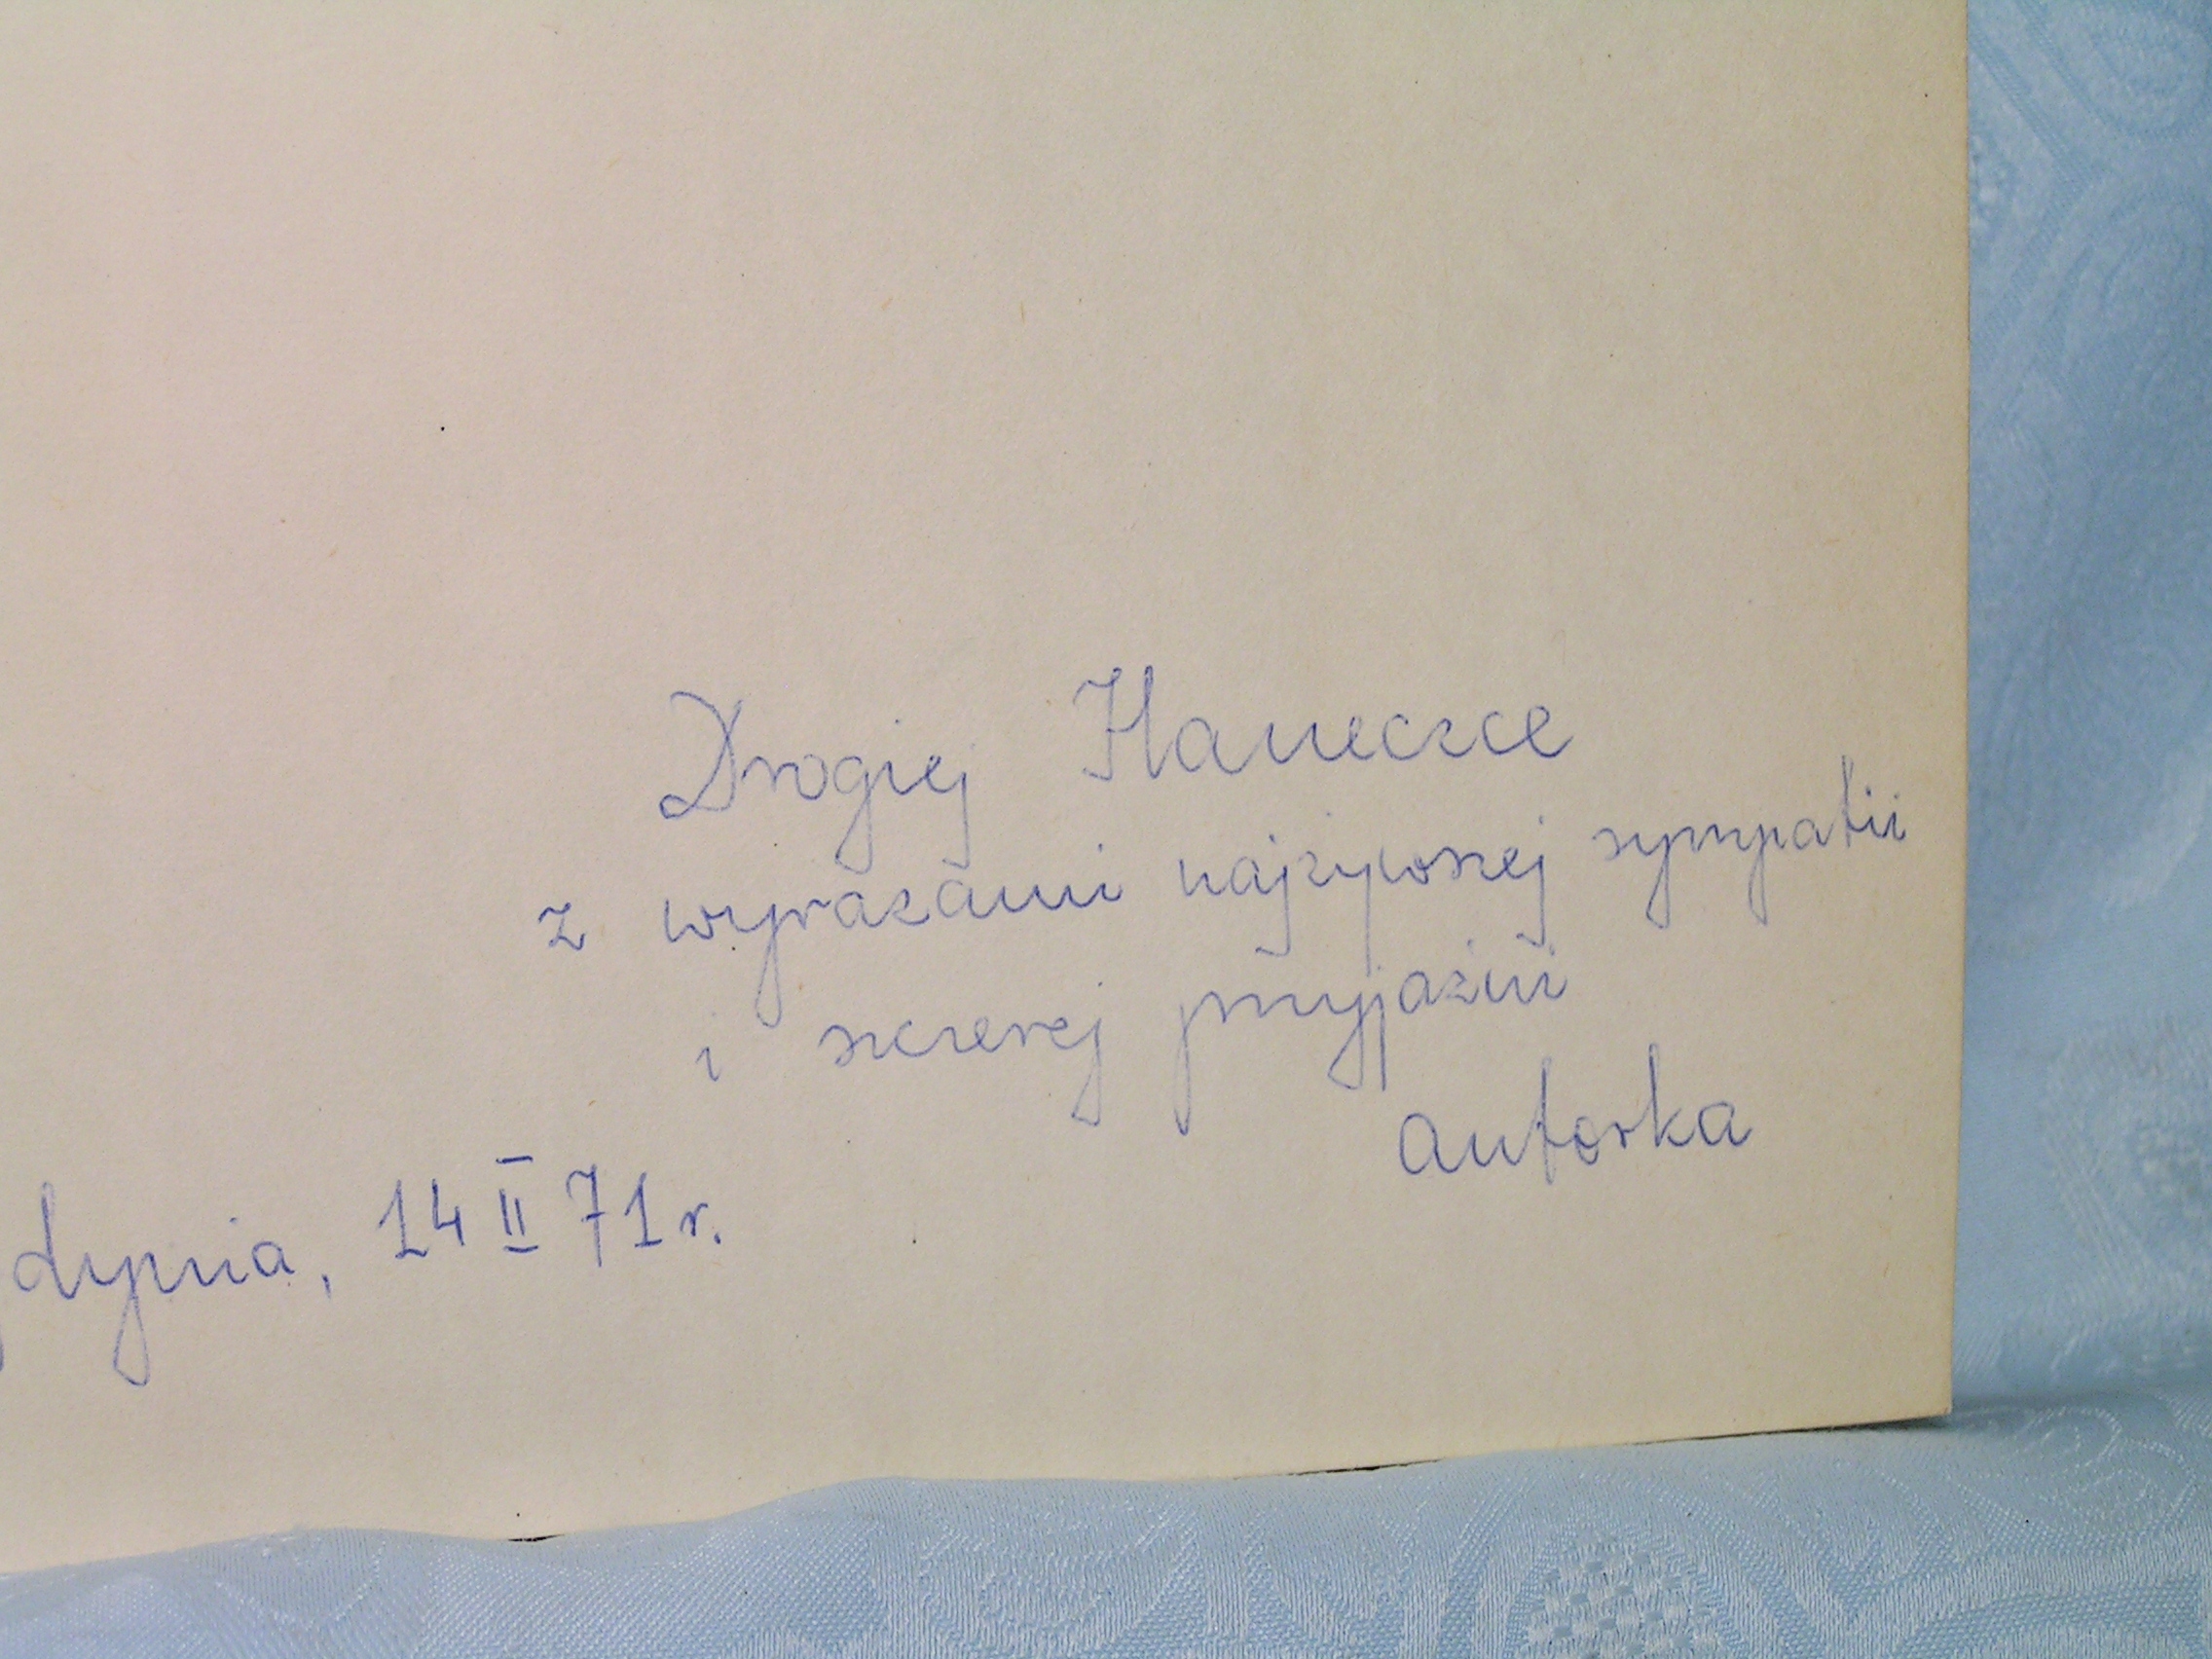 Drogiej Haneczce
z wyrazami najżywszej sympatii
i szczerej przyjaźni
autorka
dynia, 14 II 71 r.